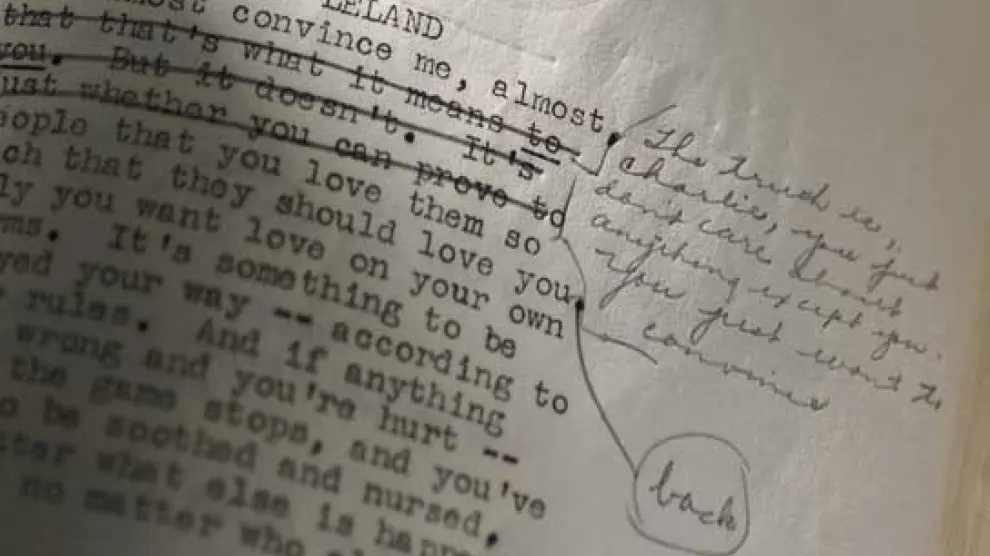 LELAND
most convince me, almost.
that that's what it means to
you. But it doesn't. It's
ust whether you can prove to
eople that you love them so
ch that they should love you.
ly you want love on your own
ms. It's something to be
yed your way -- according to
rules. And if anything
wrong and you're hurt --
the game stops, and you've
o be soothed and nursed,
tter what else is happ
no matter who
The truth is,
Charlie, you just
don't care about
anything except you.
You just want to
convince
back